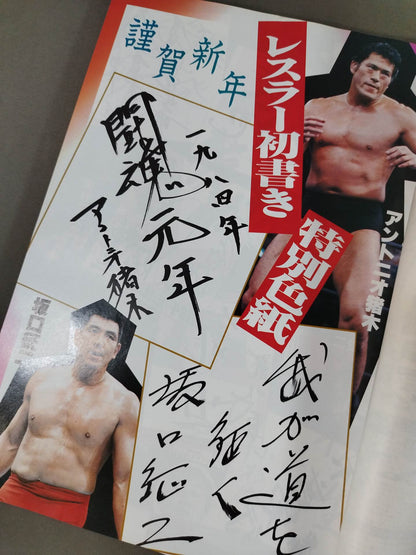 謹賀新年
レスラー初書き
特別色紙
アントニオ猪木
一九八四年
闘魂元年
アントニオ猪木
坂口征二
我が道を
征く
坂口征二